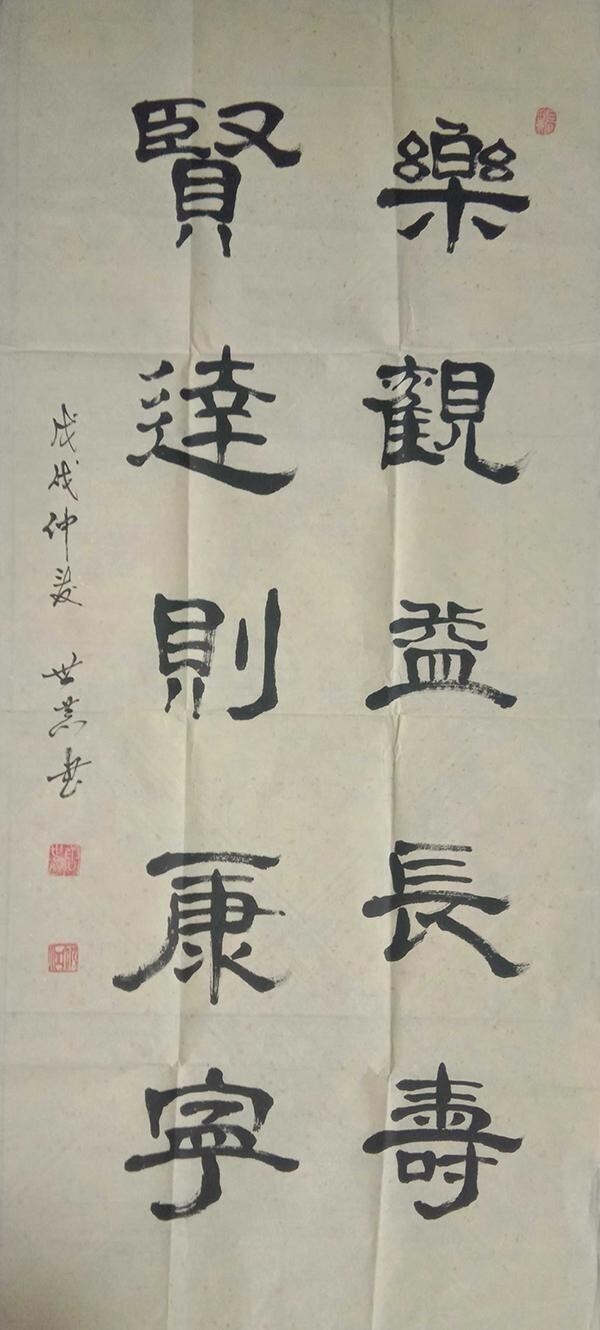 樂觀益長壽
賢達則康寧
戊戌仲夏 世其书